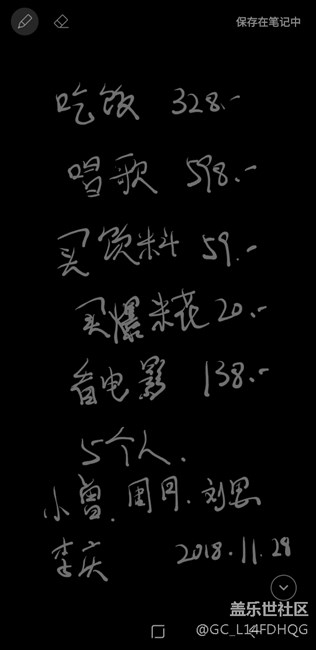 保存在笔记中
吃饭 328.-
唱歌 598.-
买饮料 59.-
买爆米花 20.-
看电影 138.-
5个人.
小曾.周丹.刘思
李庆 2018.11.29
盖乐世社区
@GC_L14FDHQG